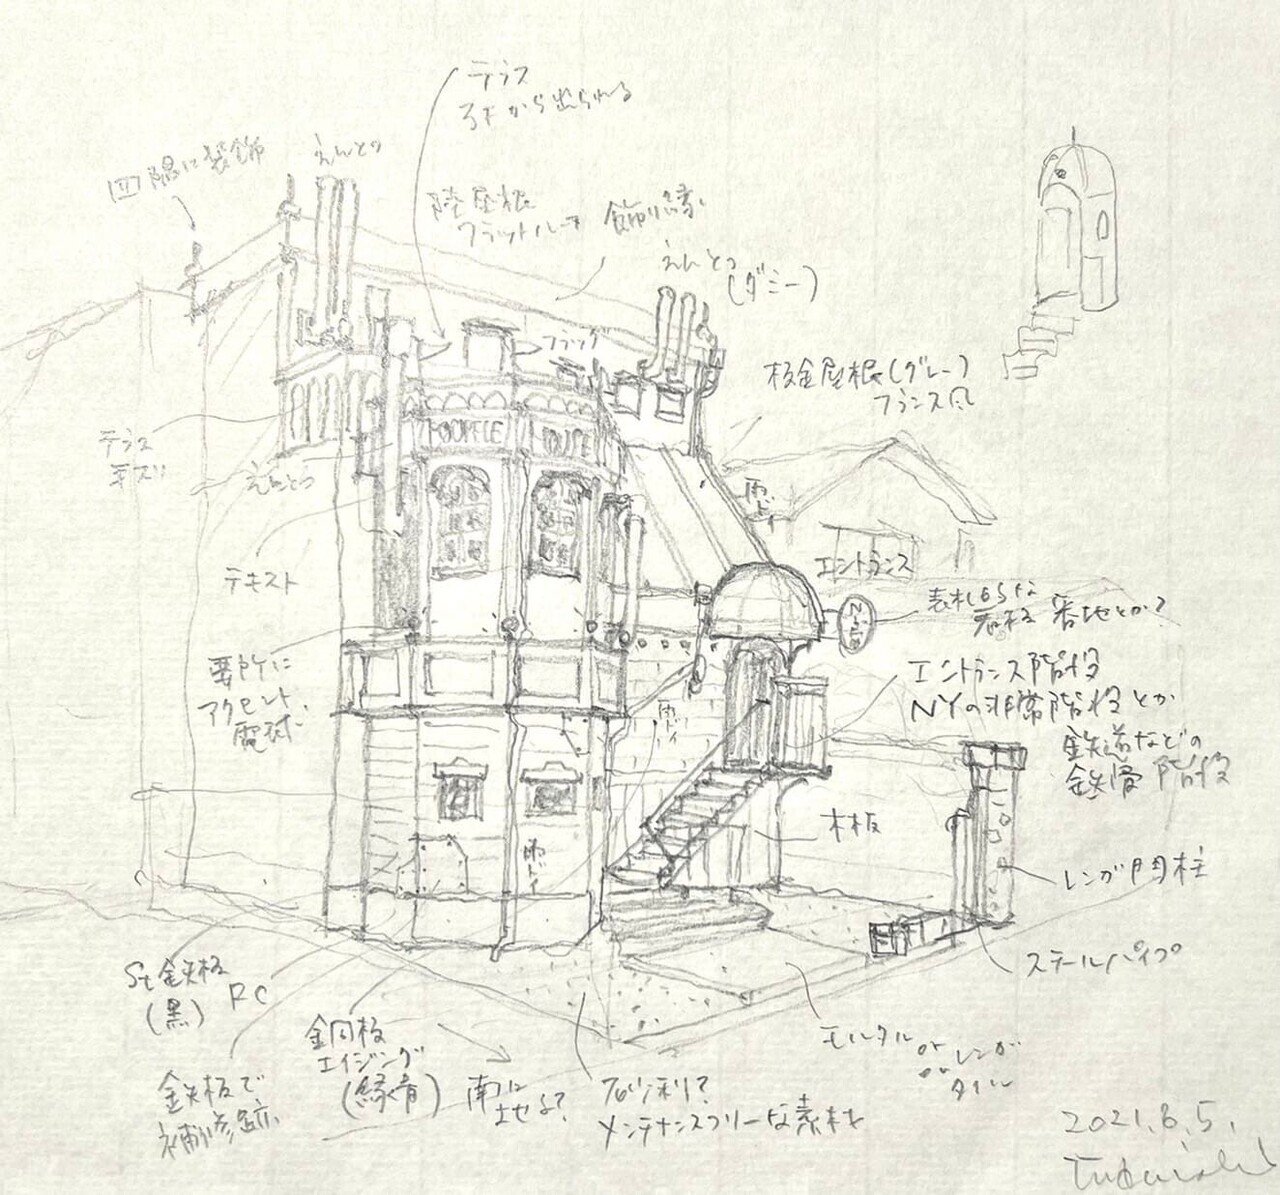 テラス
3Fから出られる
四隅に装飾
えんとつ
陸屋根
フラットルーフ
飾り縁
えんとつ
(ダミー)
フラッグ
板金屋根(グレー)
フランス風
テラス
手ズリ
えんとつ
HOUSE
雨どい
エントランス
テキスト
表札らしな
看板 番地とか?
要所に
アクセント
電球
エントランス階段
NYの非常階段とか
鉄道などの
鉄骨階段
雨ドイ
木板
雨ドイ
レンガ門柱
ステールパイプ
St鉄板
(黒)
RC
銅板
エイジング
(緑青)
モルタル or レンガ
タイル
鉄板で
補修跡
砂利?
メンテナンスフリーな素材を
2021.6.5.